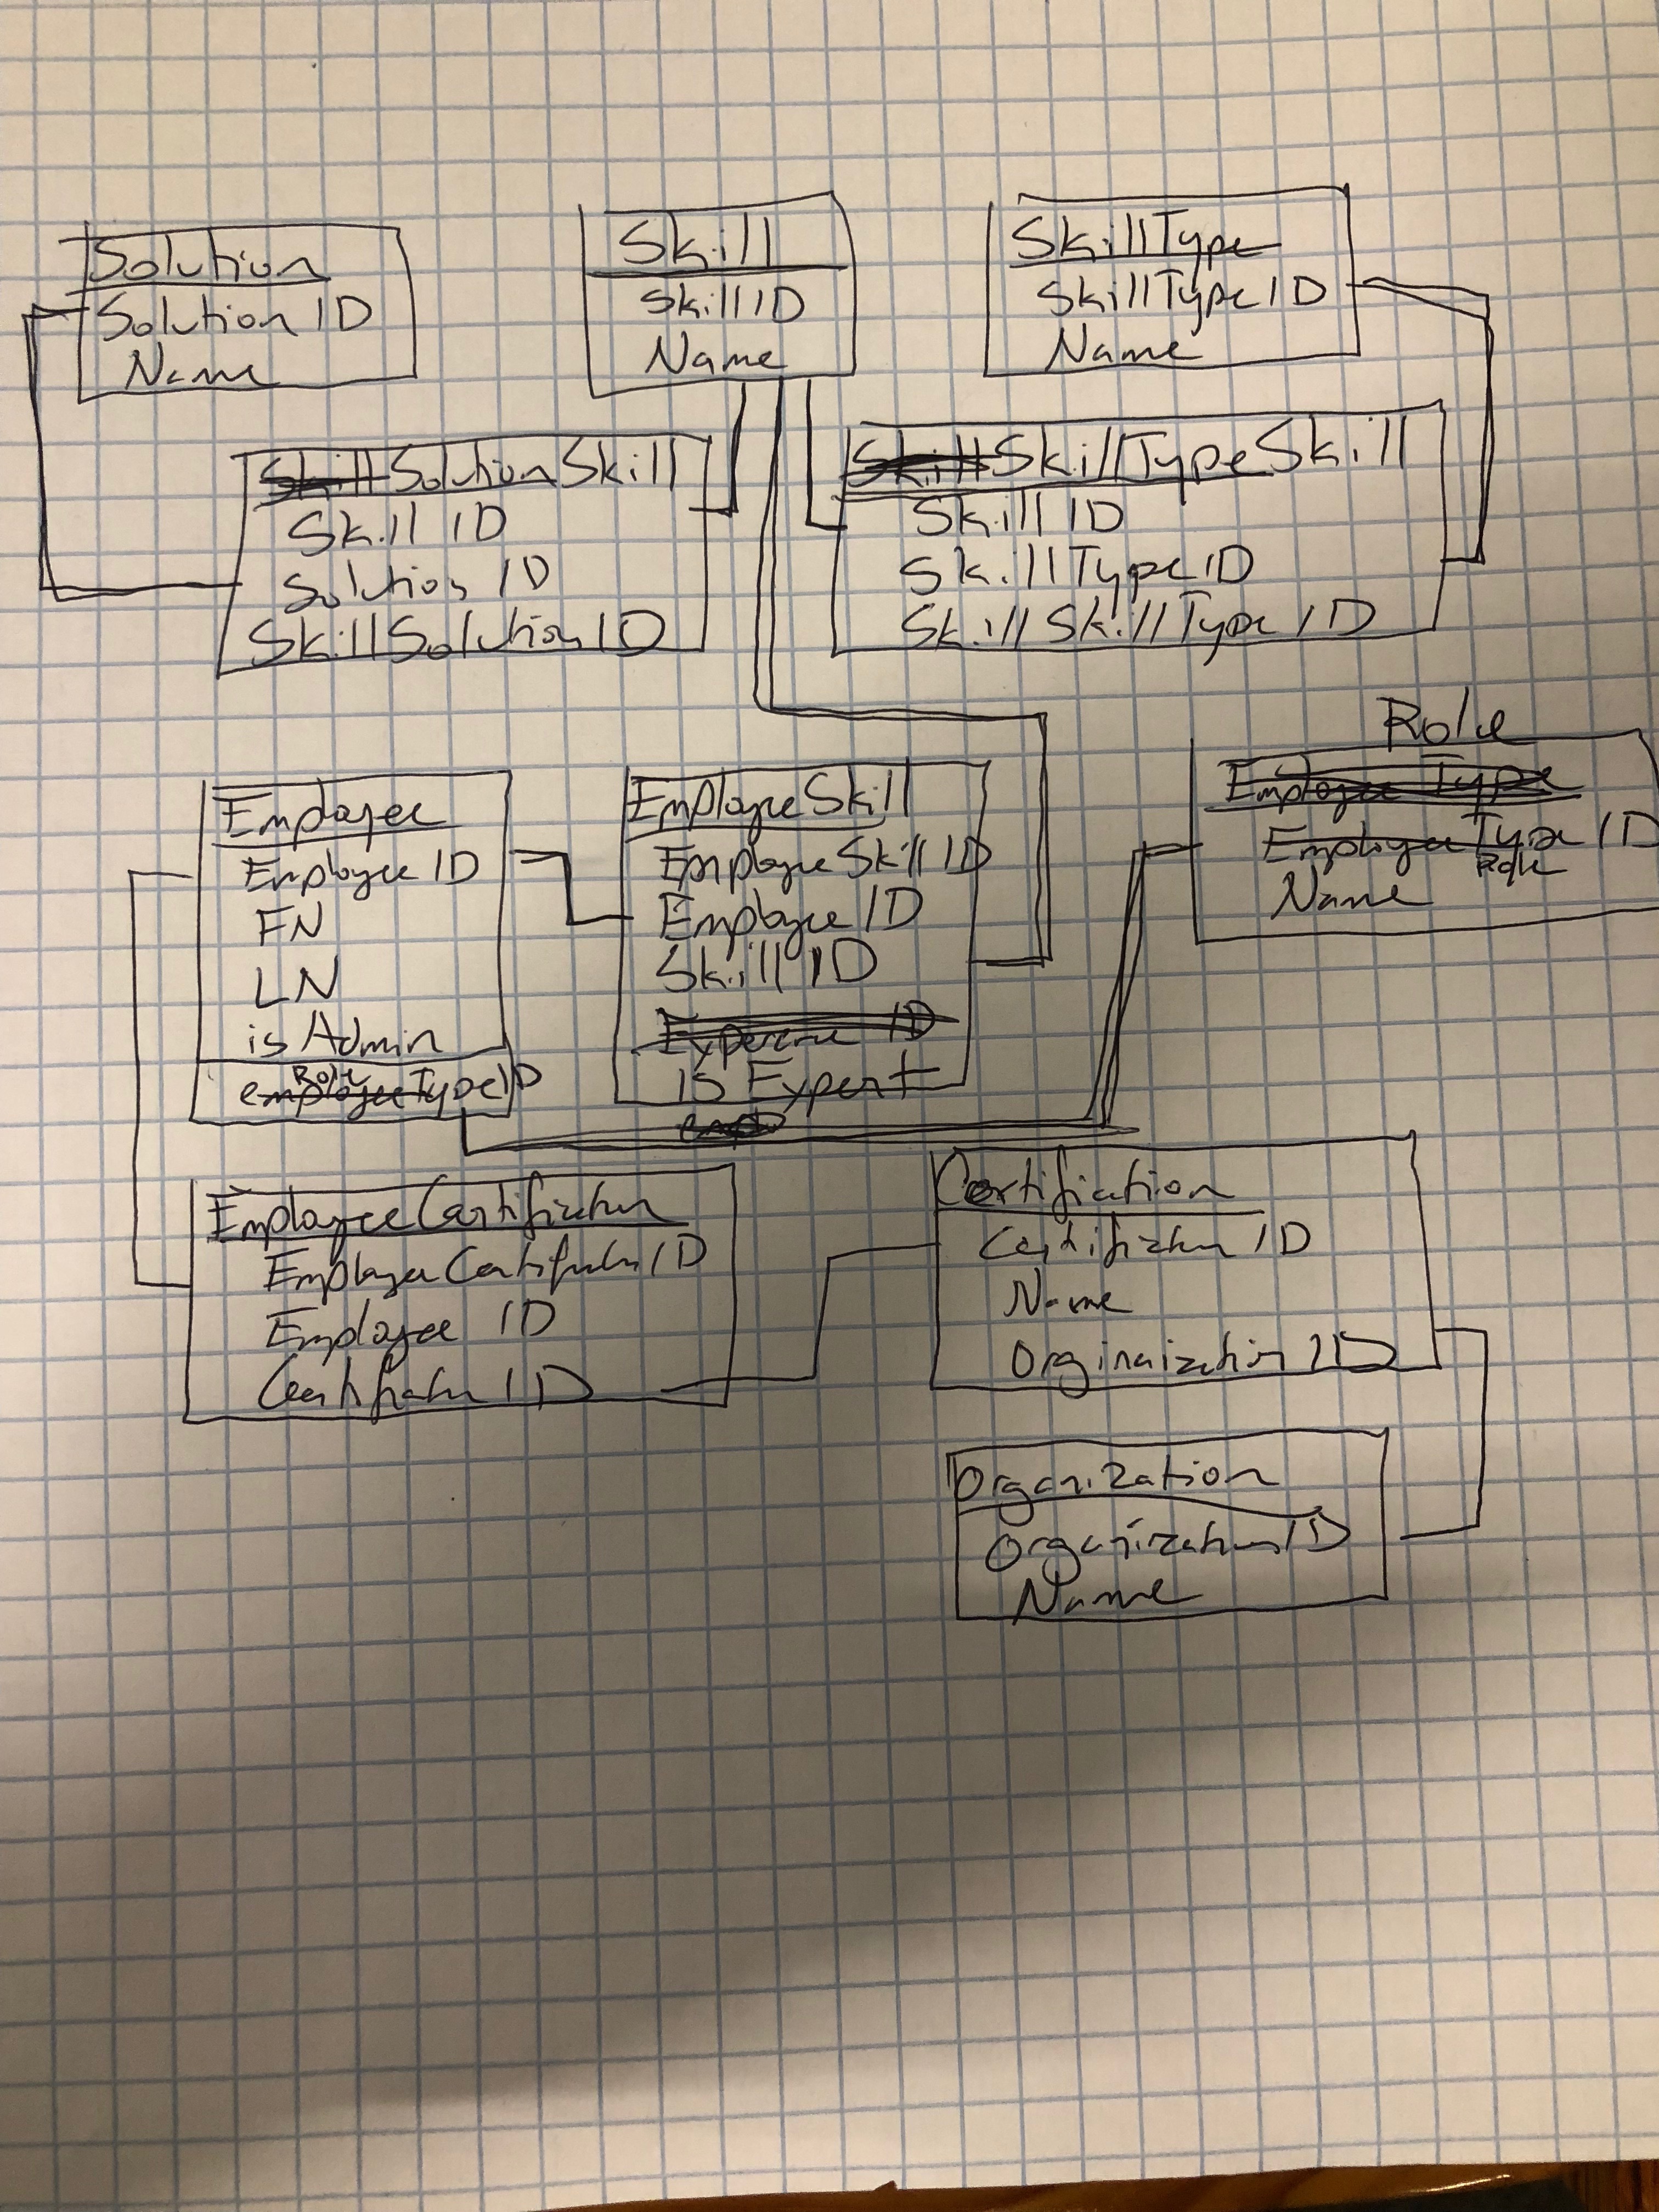 Solution
Solution ID
Name
Skill
Skill ID
Name
SkillType
SkillType ID
Name
Skill SolutionSkill
Skill ID
Solution ID
SkillSolution ID
Skill SkillTypeSkill
Skill ID
SkillType ID
SkillSkillType ID
Employee
Employee ID
FN
LN
is Admin
Role
employeeTypeID
EmployeeSkill
EmployeeSkill ID
Employee ID
Skill ID
ID
is Expert
Role
Employee Type
Employee Type ID
Role
Name
EmployeeCertification
EmployeeCertification ID
Employee ID
Certification ID
Certification
Certification ID
Name
Orginaization ID
Organization
Organization ID
Name